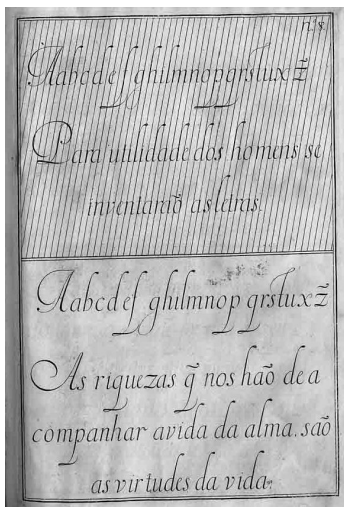 n.º 8.
Aabcdefghilmnopqrstuxz̃
Para utilidade dos homens se
inventaraõ as letras.
Aabcdef ghilmnop qrstuxz̃
As riquezas q̃ nos haõ de a
companhar avida da alma. saõ
as virtudes da vida.